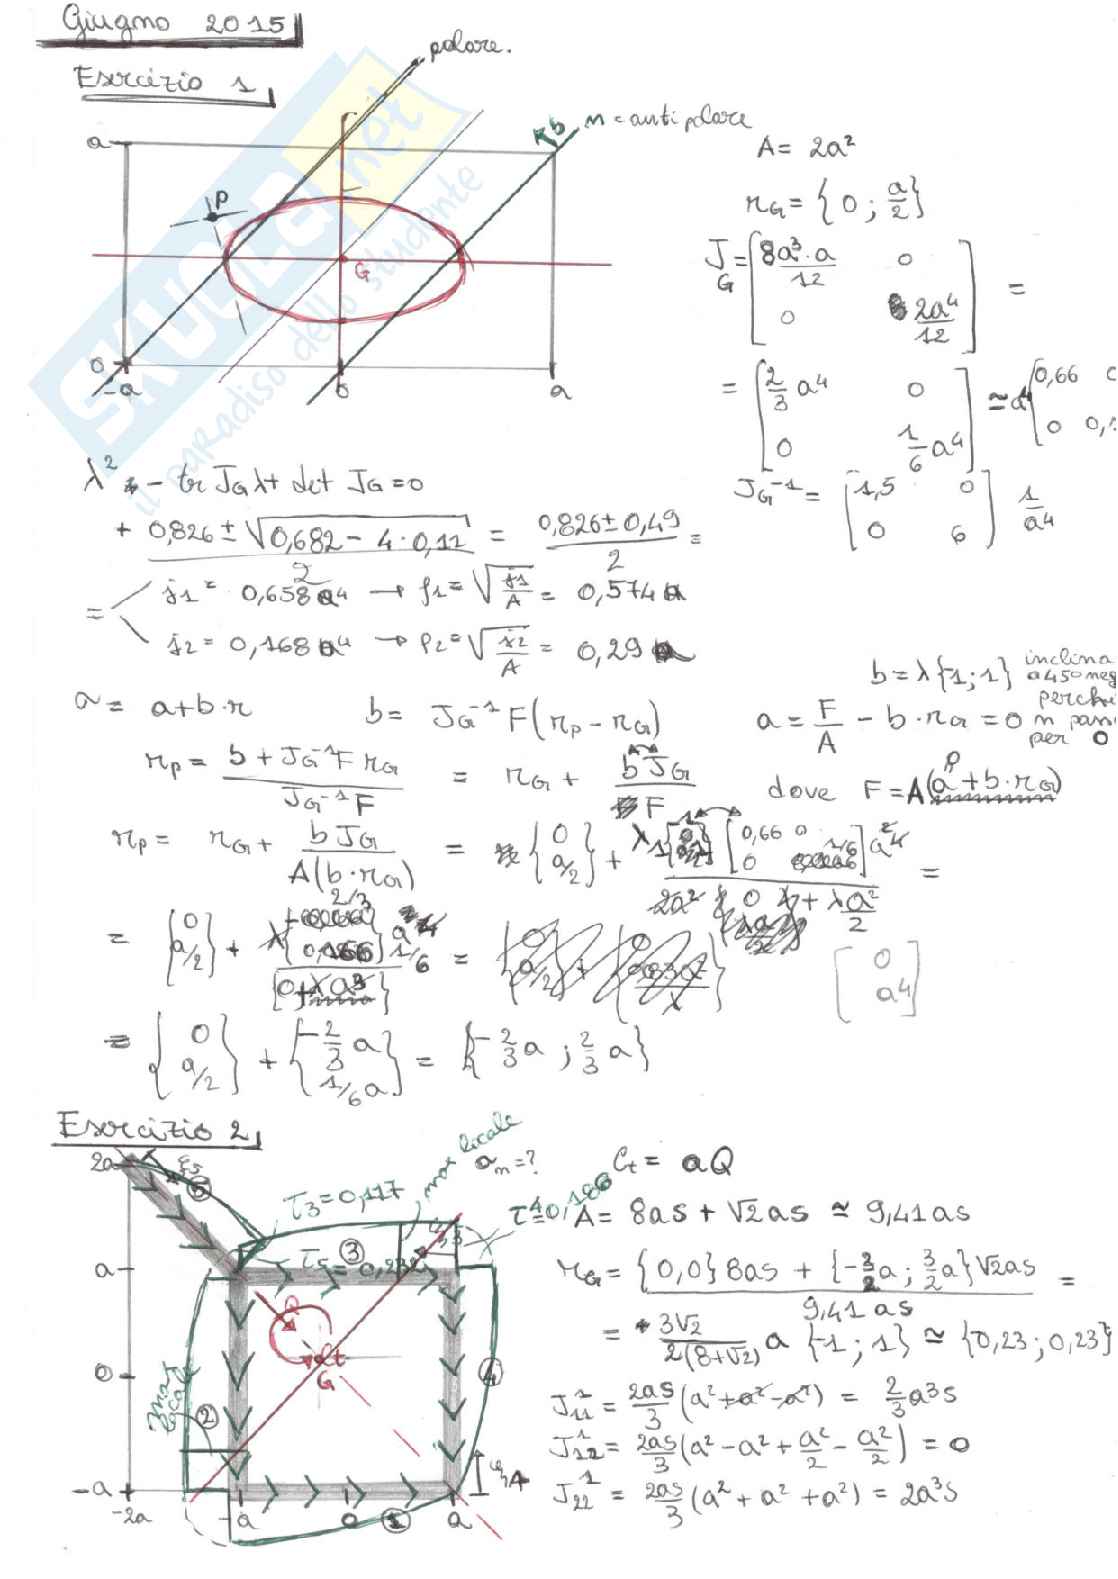 Giugno 2015
Esercizio 1
polare.
b n = antipolare
a
P
G
0
-a 0 a
A = 2a²
r_G = {0 ; a/2}
J_G = [8a³·a/12 0 ; 0 2a⁴/12] =
= [2/3 a⁴ 0 ; 0 1/6 a⁴] ≃ a⁴ [0,66
0
J_G⁻¹ = [1,5 0 ; 0 6] 1/a⁴
λ² - tr J_G λ + det J_G = 0
+ 0,826 ± √(0,682 - 4·0,11) / 2 = 0,826 ± 0,49 / 2 =
= j1 = 0,658 a⁴ → ρ1 = √(j1/A) = 0,574 a
j2 = 0,168 a⁴ → ρ2 = √(j2/A) = 0,29 a
b = λ{-1 ; 1} inclina
a 45°
perché
n
per 0
= a + b·r b = J_G⁻¹ F (r_P - r_G) a = F/A - b·r_G = 0
r_P = b + J_G⁻¹ F r_G / J_G⁻¹ F = r_G + b J_G / F dove F = A(a + b·r_G)
r_P = r_G + b J_G / A(b·r_G) = {0 ; a/2} + λ [0,66 0 ; 0 1/6] a⁴ / 2a² λ a²/2 =
= {0 ; a/2} + λ 2/3 1/6 =
[0 ; a⁴]
= {0 ; a/2} + {-2/3 a ; 1/6 a} = {-2/3 a ; 2/3 a}
Esercizio 2
2a
ξ5
⑤
τ3 = 0,117
max locale
a_m = ?
τ4 = 0,186
③
τ5 = 0,232
a
Q
Ct
G
0
④
max locale
②
-a
-2a -a 0 ① a
ξ4
Ct = aQ
A = 8as + √2as ≃ 9,41as
r_G = {0,0} 8as + {-3/2 a ; 3/2 a} √2as / 9,41 as =
= 3√2 / 2(8+√2) a {-1 ; 1} ≃ {0,23 ; 0,23}
J¹₁₁ = 2as/3 (a² + a² - a²) = 2/3 a³s
J¹₁₂ = 2as/3 (a² - a² + a²/2 - a²/2) = 0
J¹₂₂ = 2as/3 (a² + a² + a²) = 2a³s
SKUOLA.net
il paradiso dello studente